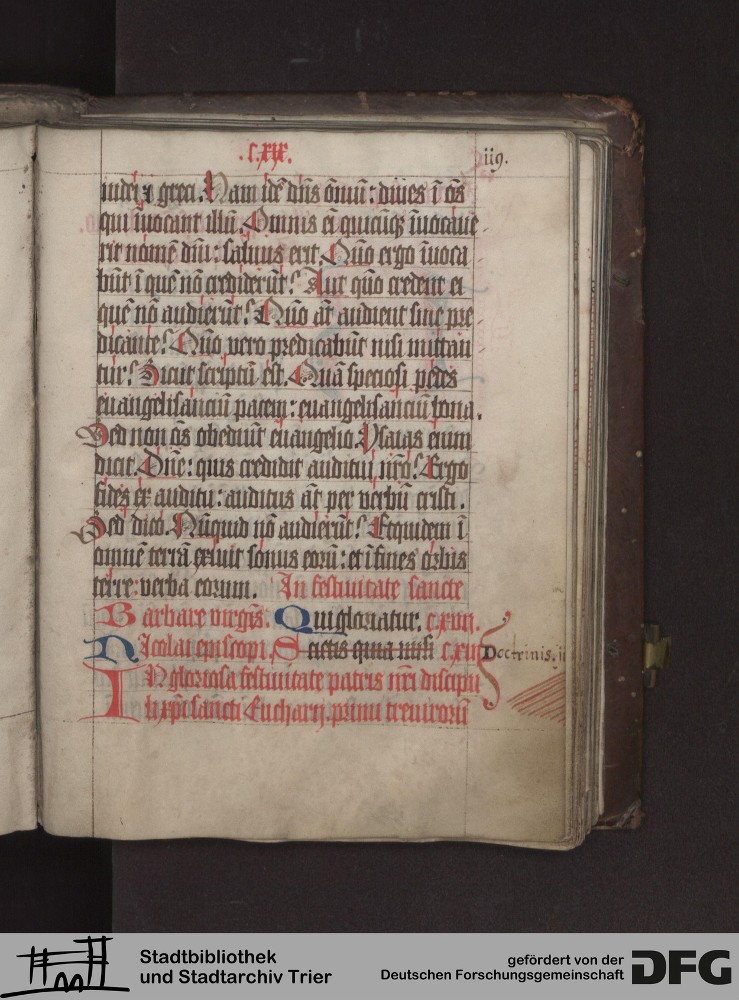 .C.XIX.
119.
iudei ⁊ greci. Nam idē dn̄s om̄iū: diues ī om̄s
qui īuocant illū. Omnis em̄ quicūq̄ īuocaue
rit nomē dn̄i: saluus erit. Quō ergo īuoca
būt ī quē nō crediderūt? Aut quō credent ei
quē nō audierūt? Quō aūt audient sine pre
dicante? Quō vero predicabūt nisi mittan
tur? Sicut scriptū est. Quā speciosi pedes
euangelisanciū pacem: euangelisanciū bona.
Sed non om̄s obediūt euangelio. Ysaias enim
dicit. Dn̄e: quis credidit auditui nr̄o? Ergo
fides ex auditu: auditus aūt per verbū cristi.
Sed dico. Nūquid nō audierūt? Et quidem ī
omnē terrā exiuit sonus eorū: et ī fines orbis
terre: verba eorum. In festiuitate sancte
Barbare virgīs. Qui gloriatur. c.xvij.
Nicolai episcopi. c.xvij
Doctrinis.
In gloriosa festiuitate patris nr̄i discipu
li xp̄i sancti Eucharij. primi treuirorū
Stadtbibliothek
und Stadtarchiv Trier
gefördert von der
Deutschen Forschungsgemeinschaft
DFG